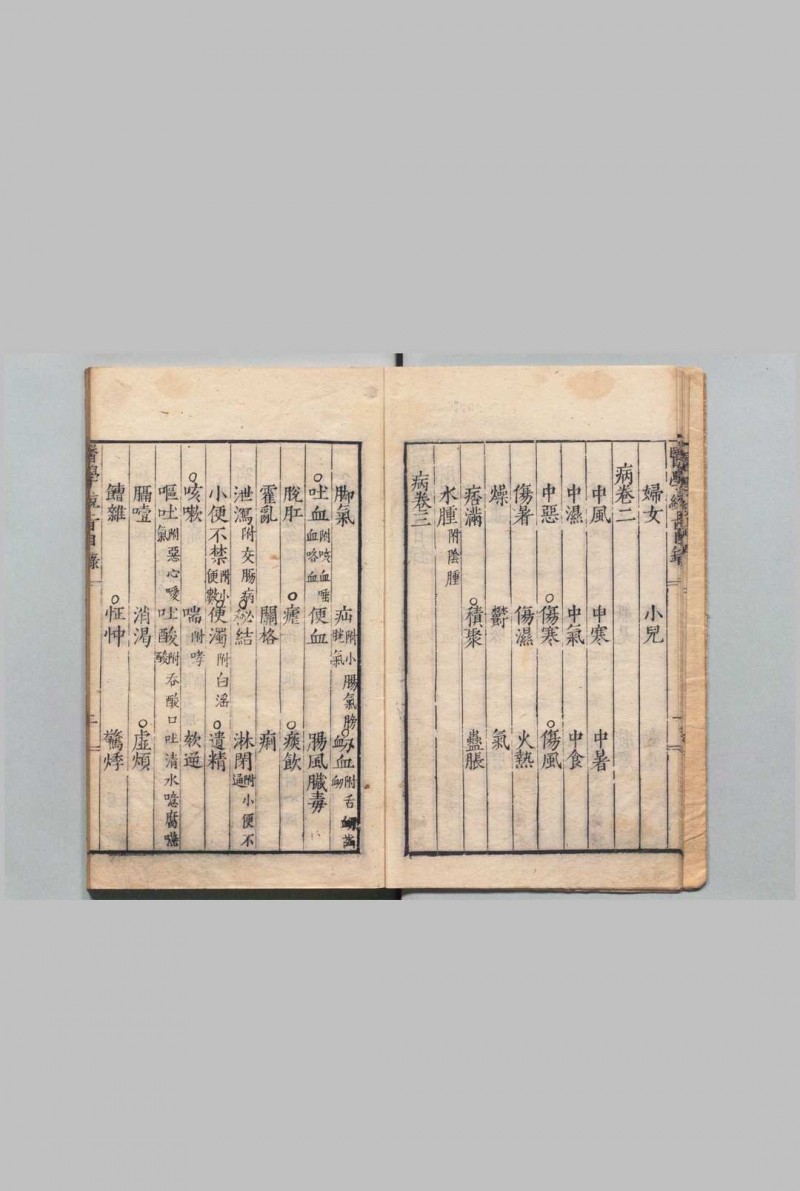 婦女 小兒
病卷二
中風 中寒 中暑
中濕 中氣 中食
中惡 傷寒 傷風
傷暑 傷濕 火熱
燥 鬱 氣
痞滿 積聚 蠱脹
水腫附陰腫
病卷三
脚氣 疝附小腸氣膀胱氣 衂血附舌衂
吐血附咳血唾血咯血 便血 腸風臟毒
脫肛 瘧 痰飲
霍亂 關格 痢
泄瀉附交腸病 秘結 淋閉附小便不通
小便不禁附小便數 便濁附白滛 遺精
咳嗽 喘附哮 欬逆
嘔吐附惡心噯氣 吐酸附吞酸口吐清水噫腐
膈噎 消渴 虛煩
饐雜 怔忡 驚悸